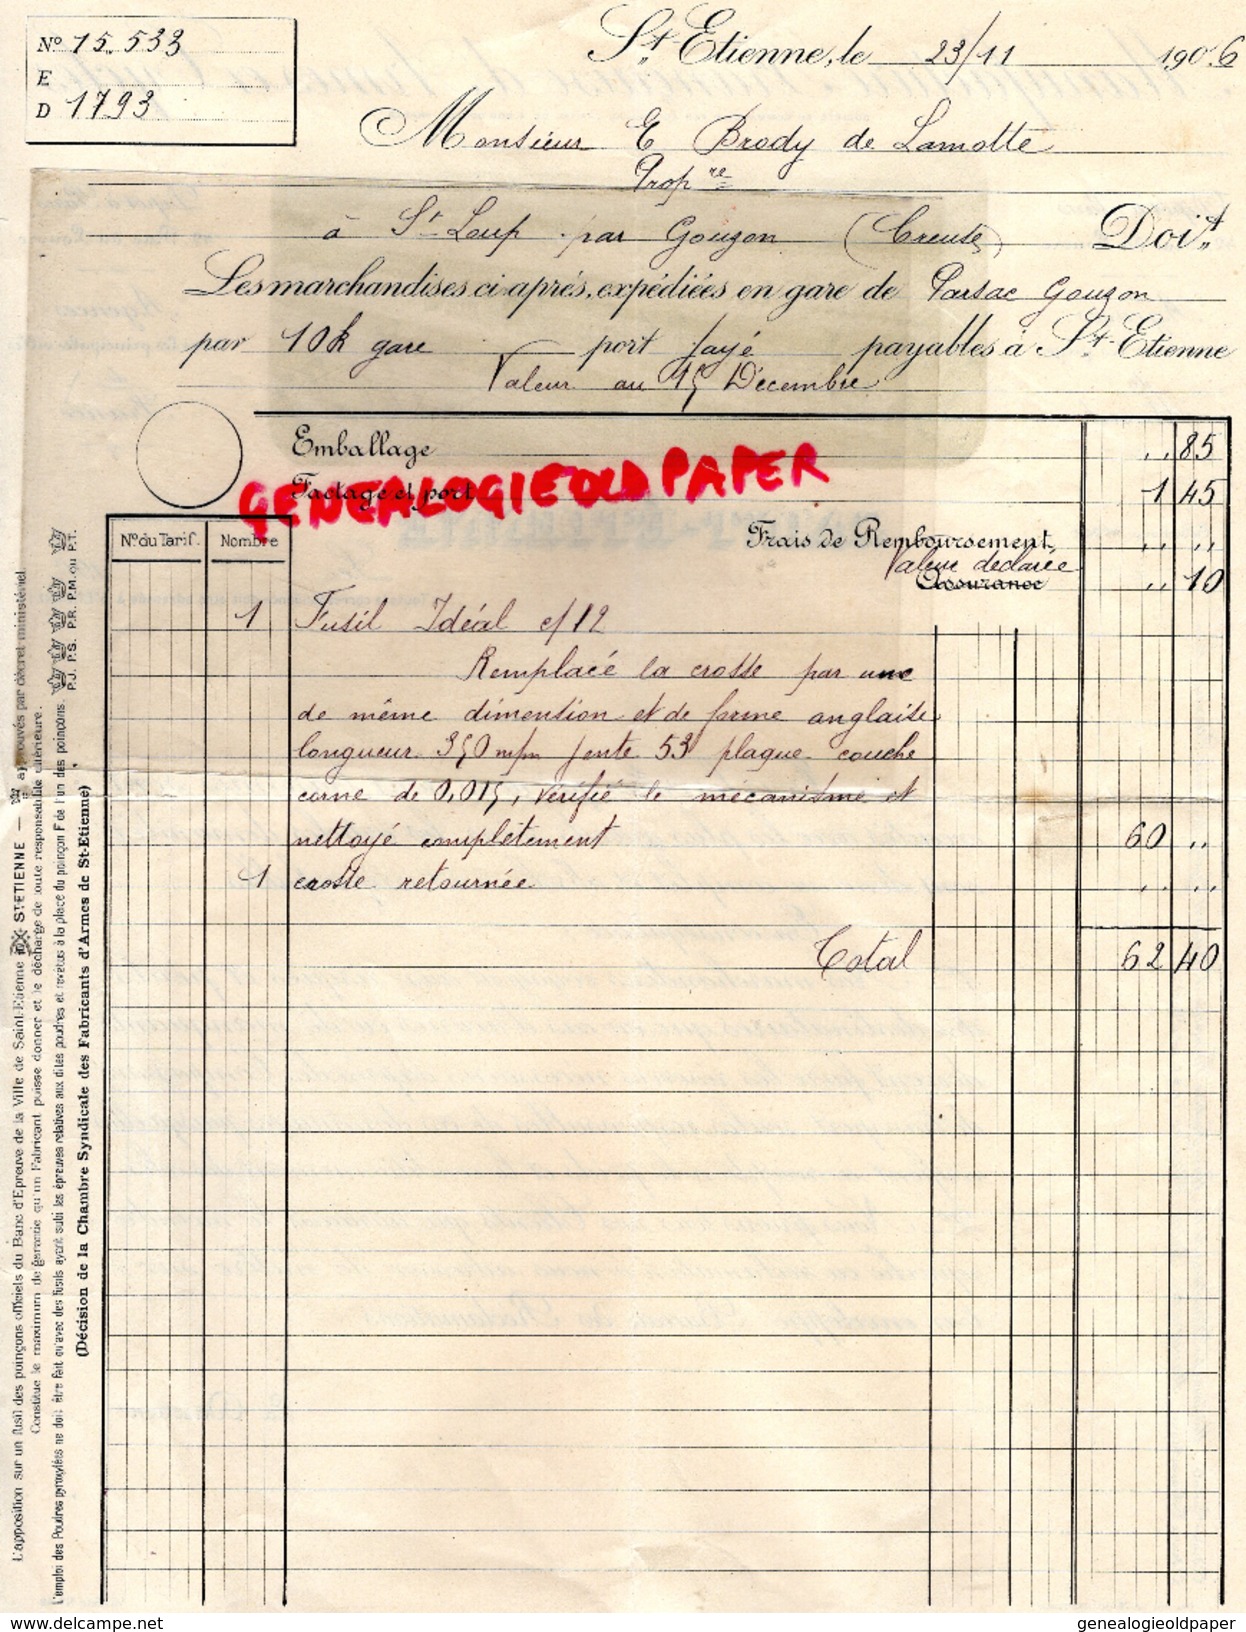 Nº 15.533
E
D 1793
St Etienne, le 23/11 1906
Monsieur E Brody de Lamotte
Propre
à St Loup par Gouzon (Creuse) Doit
Les marchandises ci-après, expédiées en gare de Parsac Gouzon
par 10k gare port payé payables à St Etienne
Valeur au 15 Décembre
Emballage ,, 85
Factage et port 1 45
GENEALOGIE OLD PAPER
Nº du Tarif. Nombre
Frais de Remboursement ,, ,,
Valeur déclarée
Assurance ,, 10
1 Fusil Idéal c/12
Remplacé la crosse par une
de même dimension et de forme anglaise
longueur 350 m/m pente 53 plaque couche
corne de 0,015, vérifié le mécanisme et
nettoyé complètement 60 ,,
1 crosse retournée ,, ,,
Total 62 40
L'apposition sur un fusil des poinçons officiels du Banc d'Epreuve de la Ville de Saint-Etienne ST-ETIENNE — approuvés par décret ministériel
Constitue le maximum de garantie qu'un Fabricant puisse donner et le décharge de toute responsabilité ultérieure.
L'emploi des Poudres pyroxylées ne doit être fait qu'avec des fusils ayant subi les épreuves relatives aux dites poudres et revêtus à la place du poinçon F de l'un des poinçons. P.J. P.S. P.R. P.M. ou P.T.
(Décision de la Chambre Syndicale des Fabricants d'Armes de St-Etienne)
http://www.delcampe.net
genealogieoldpaper